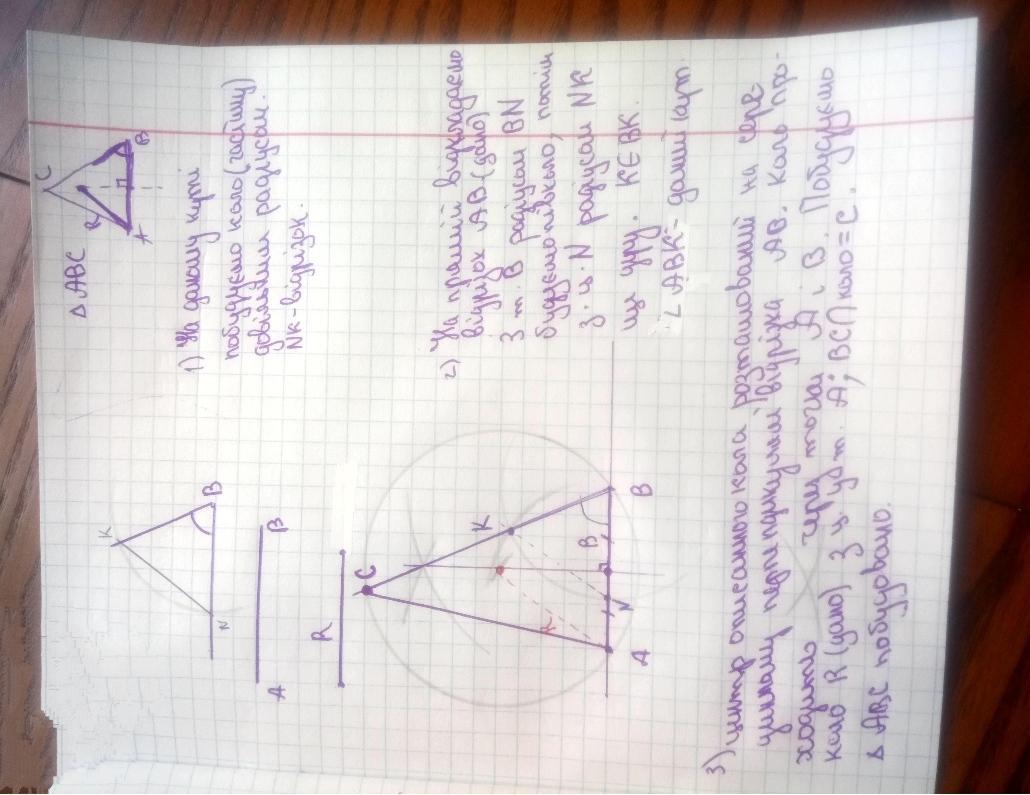 Δ ABC
C
R
A
B
1) На даному куті
побудуємо коло (частину)
довільним радіусом.
NK - відрізок.
K
N
B
A
B
R
2) На прямій відкладаємо
відрізок AB (дано)
З т. B радіусом BN
будуємо півколо, потім
З ц. N радіусом NK
ще дугу. K∈BK.
∠ABK - даний кут
C
K
R
A
N
B
B
3) Центр описаного кола розташований на сере-
динному перпендикулярі відрізка AB. Коло про-
ходить через точки A і B. Побудуємо
коло R (дано) З ц. у т. A; BC∩коло=C.
Δ ABC побудовано.